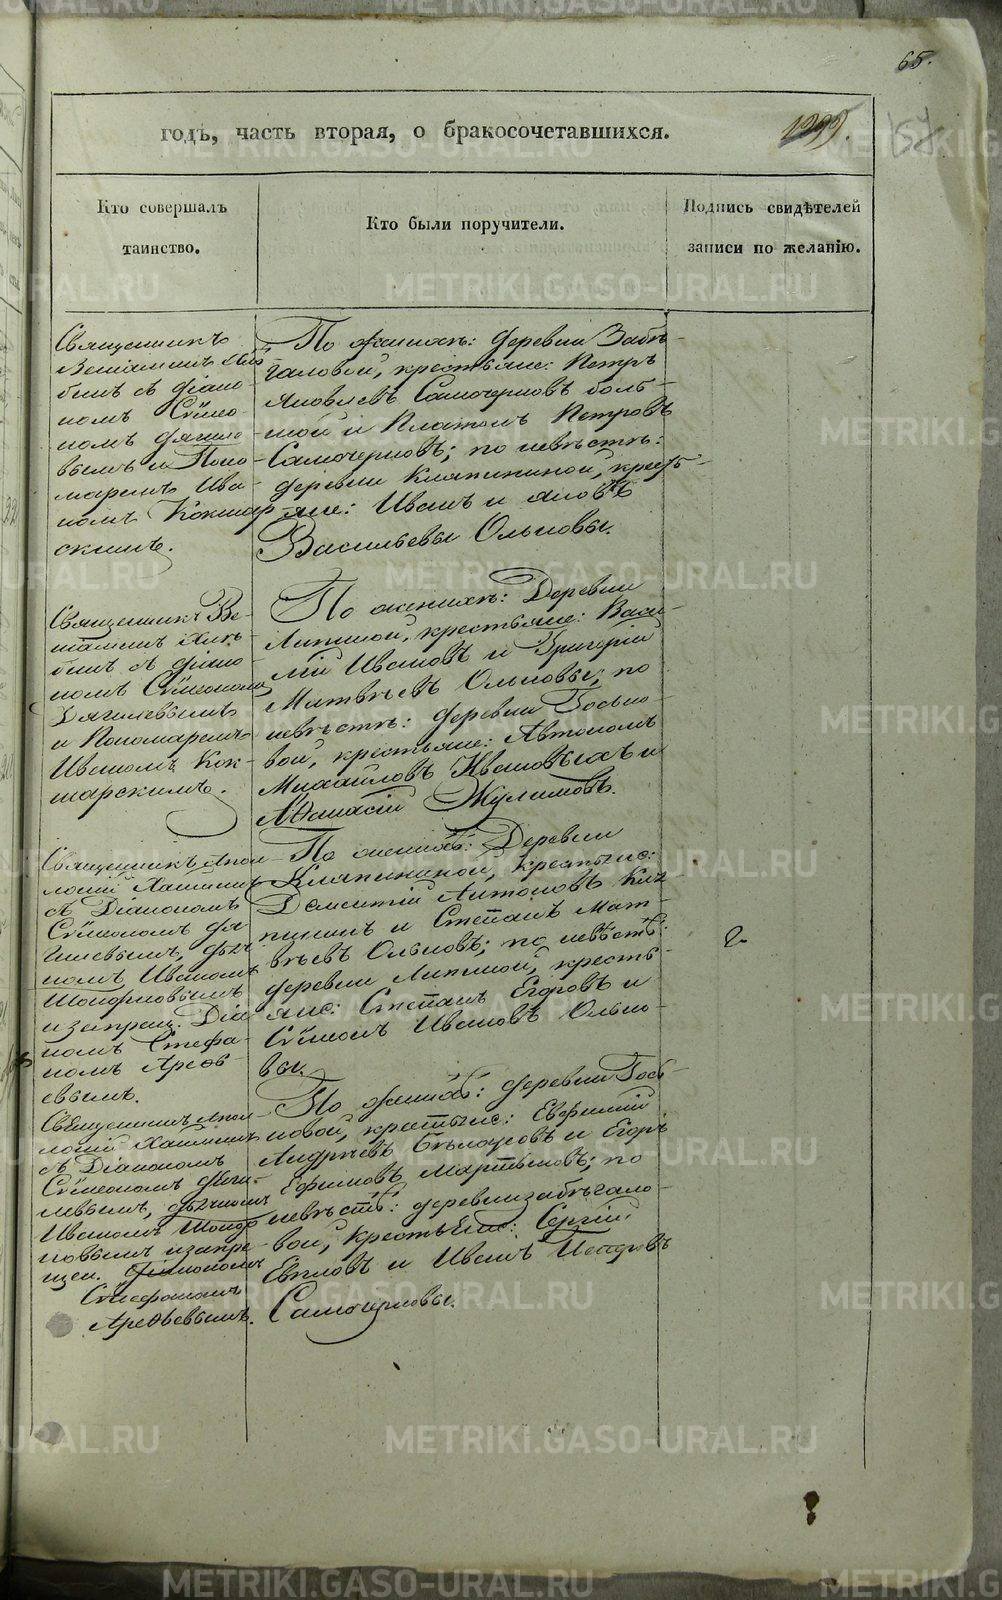 65.
годъ, часть вторая, о бракосочетавшихся.
Кто совершалъ
таинство.
Кто были поручители.
Подпись свидѣтелей
записи по желанію.
Священникъ
бинъ съ діако-
номъ Сѵмео-
номъ Дягиле-
вымъ и Поно-
маремъ Ива-
номъ Кокшар-
скимъ.
По женихѣ: деревни Забѣ-
галовой, крестьяне: Петръ
Яковлевъ Самочерновъ боль-
шой и Платонъ Петровъ
Самочерновъ; по невѣстѣ:
деревни Кляпининой, кресть-
яне: Иванъ и Яковъ
Васильевы Ольковы.
Священникъ Ве-
ніаминъ
бинъ съ діако-
номъ Сѵмеономъ
Дягилевымъ
и Пономаремъ
Иваномъ Кок-
шарскимъ.
По женихѣ: Деревни
Липиной, крестьяне: Васи-
лій Ивановъ и Григорій
Матвѣевъ Ольковы; по
невѣстѣ: деревни Госько-
вой, крестьяне: Автономъ
Михайловъ Ивановыхъ и
Аѳанасій Жулимовъ.
Священникъ Апол-
лоній
съ Діакономъ
Сѵмеономъ Дя-
гилевымъ, дьяч-
комъ Иваномъ
и запрещ. Діа
номъ Стефа-
номъ Ареѳь-
евымъ.
По женихѣ: Деревни
Кляпининой, крестьяне:
Дементій Антоновъ Кля-
пининъ и Степанъ Мат-
вѣевъ Ольковъ; по невѣстѣ:
деревни Липиной, кресть-
яне: Степанъ Егоровъ и
Сѵмеонъ Ивановъ Олько-
вы.
Священникъ Апол-
лоній
съ Діакономъ
Сѵмеономъ Дяги-
левымъ, дьячкомъ
Иваномъ
новымъ и запре-
щен. Діакономъ
Стефаномъ
Ареѳьевымъ.
По женихѣ: деревни Гось-
ковой, крестьяне: Евфимій
Андреевъ Бѣлоусовъ и Егоръ
Ефимовъ Мартьяновъ; по
невѣстѣ: деревни Забѣгало-
вой, крестьяне: Сергій
Евпловъ и Иванъ Петровъ
Самочерновы.
METRIKI.GASO-URAL.RU